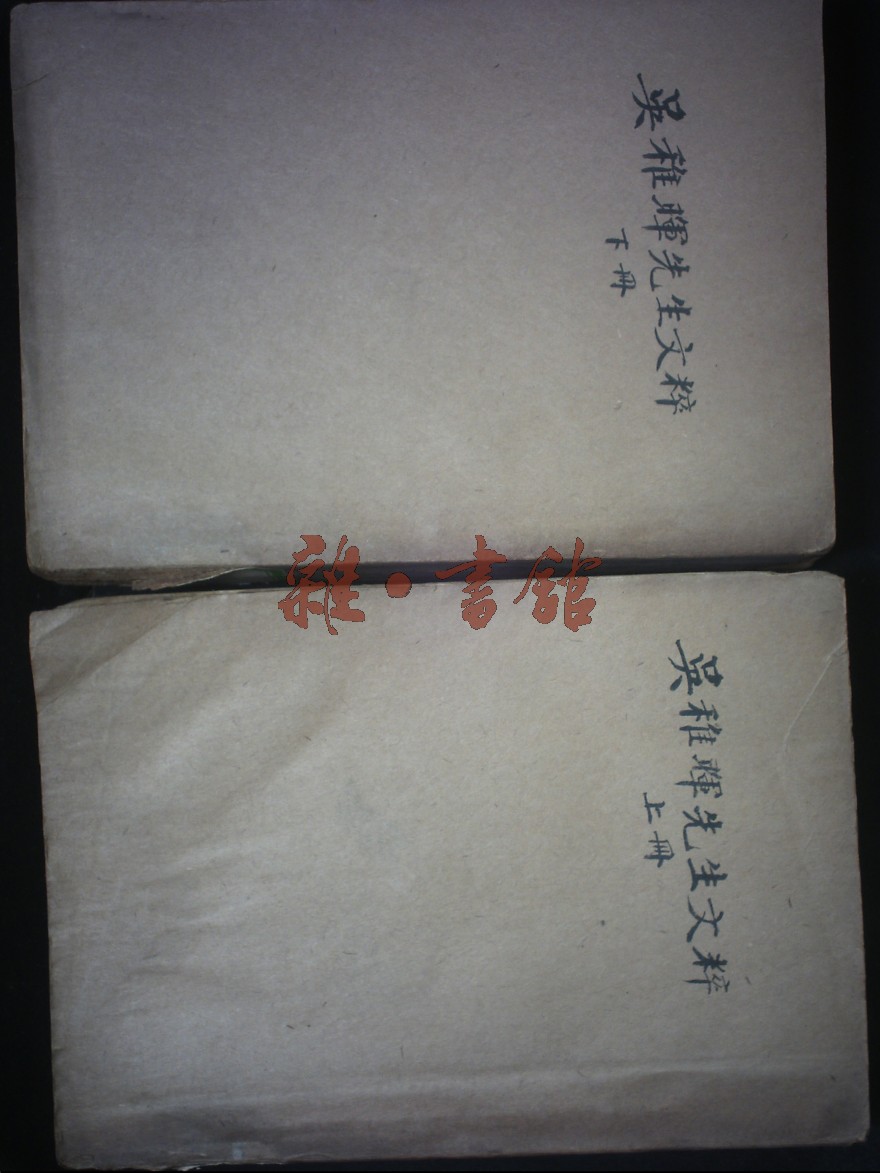 吳稚暉先生文粹
下冊
雜·書館
吳稚暉先生文粹
上冊